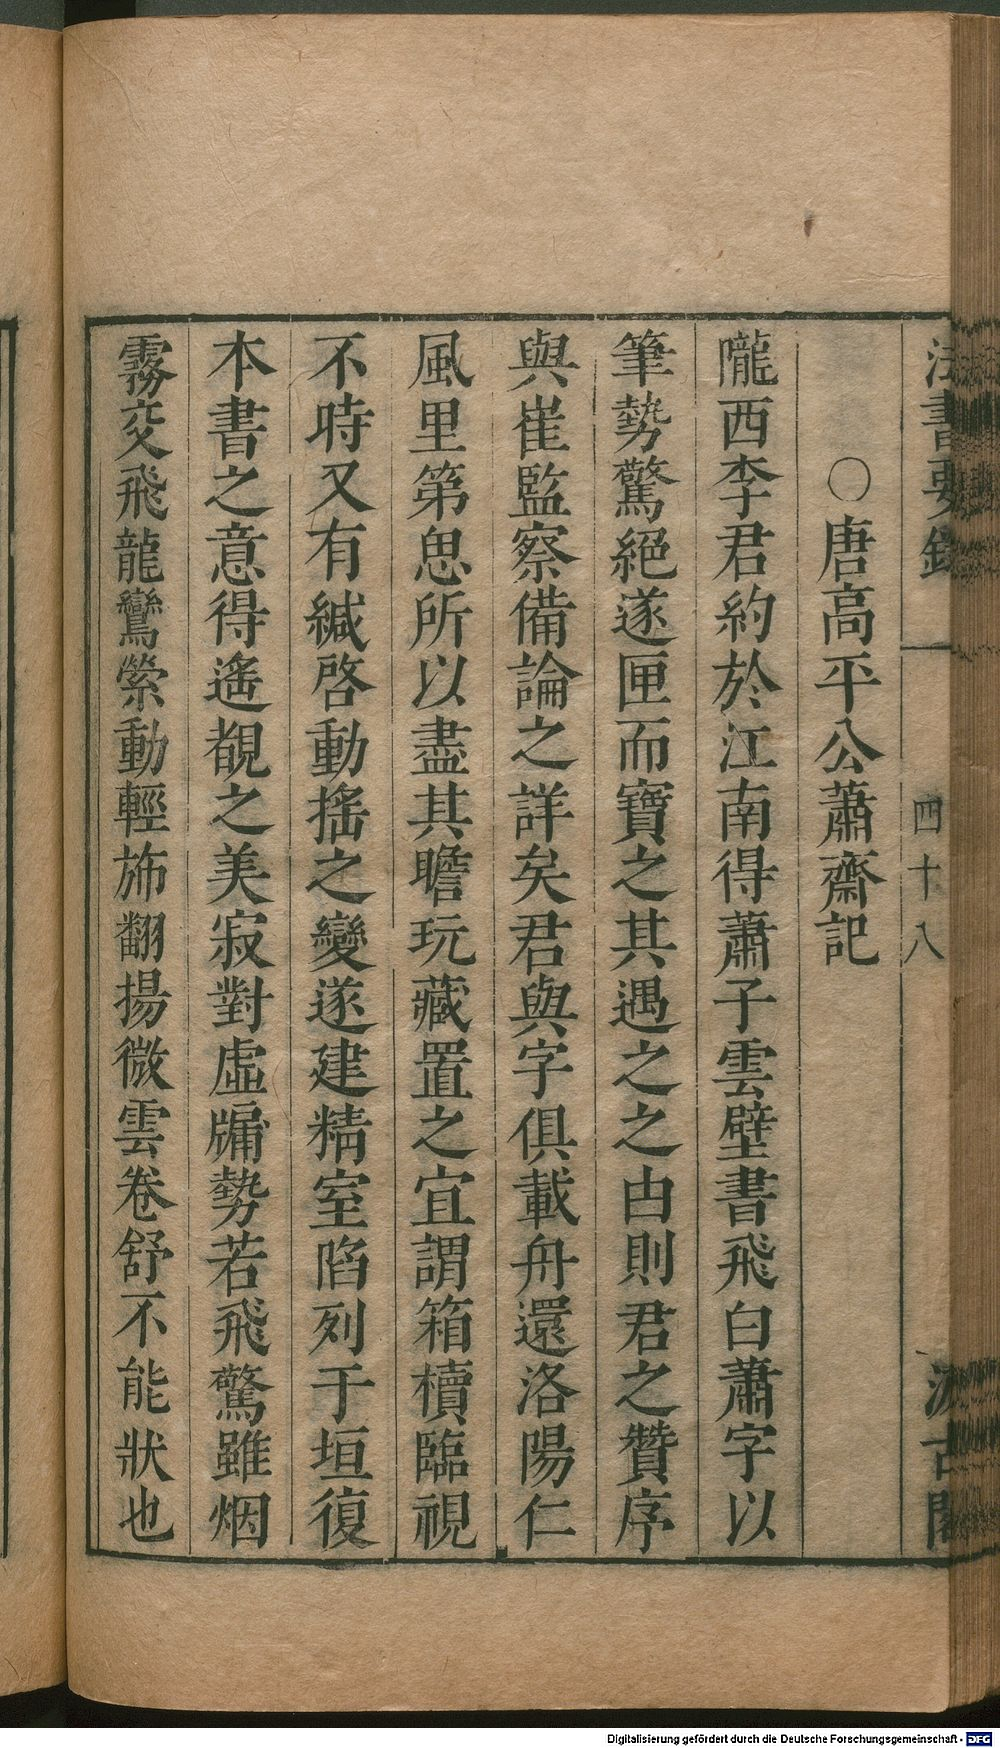 法書要錄 四十八 汲古閣
○唐高平公蕭齋記
隴西李君約於江南得蕭子雲壁書飛白蕭字以
筆勢驚絕遂匣而寶之其遇之之由則君之贊序
與崔監察備論之詳矣君與字俱載舟還洛陽仁
風里第思所以盡其瞻玩藏置之宜謂箱櫝臨視
不時又有緘啓動搖之變遂建精室陷列于垣復
本書之意得遙覩之美寂對虛牖勢若飛驚雖烟
霧交飛龍鸞縈動輕斾翻揚微雲卷舒不能狀也
Digitalisierung gefördert durch die Deutsche Forschungsgemeinschaft - DFG